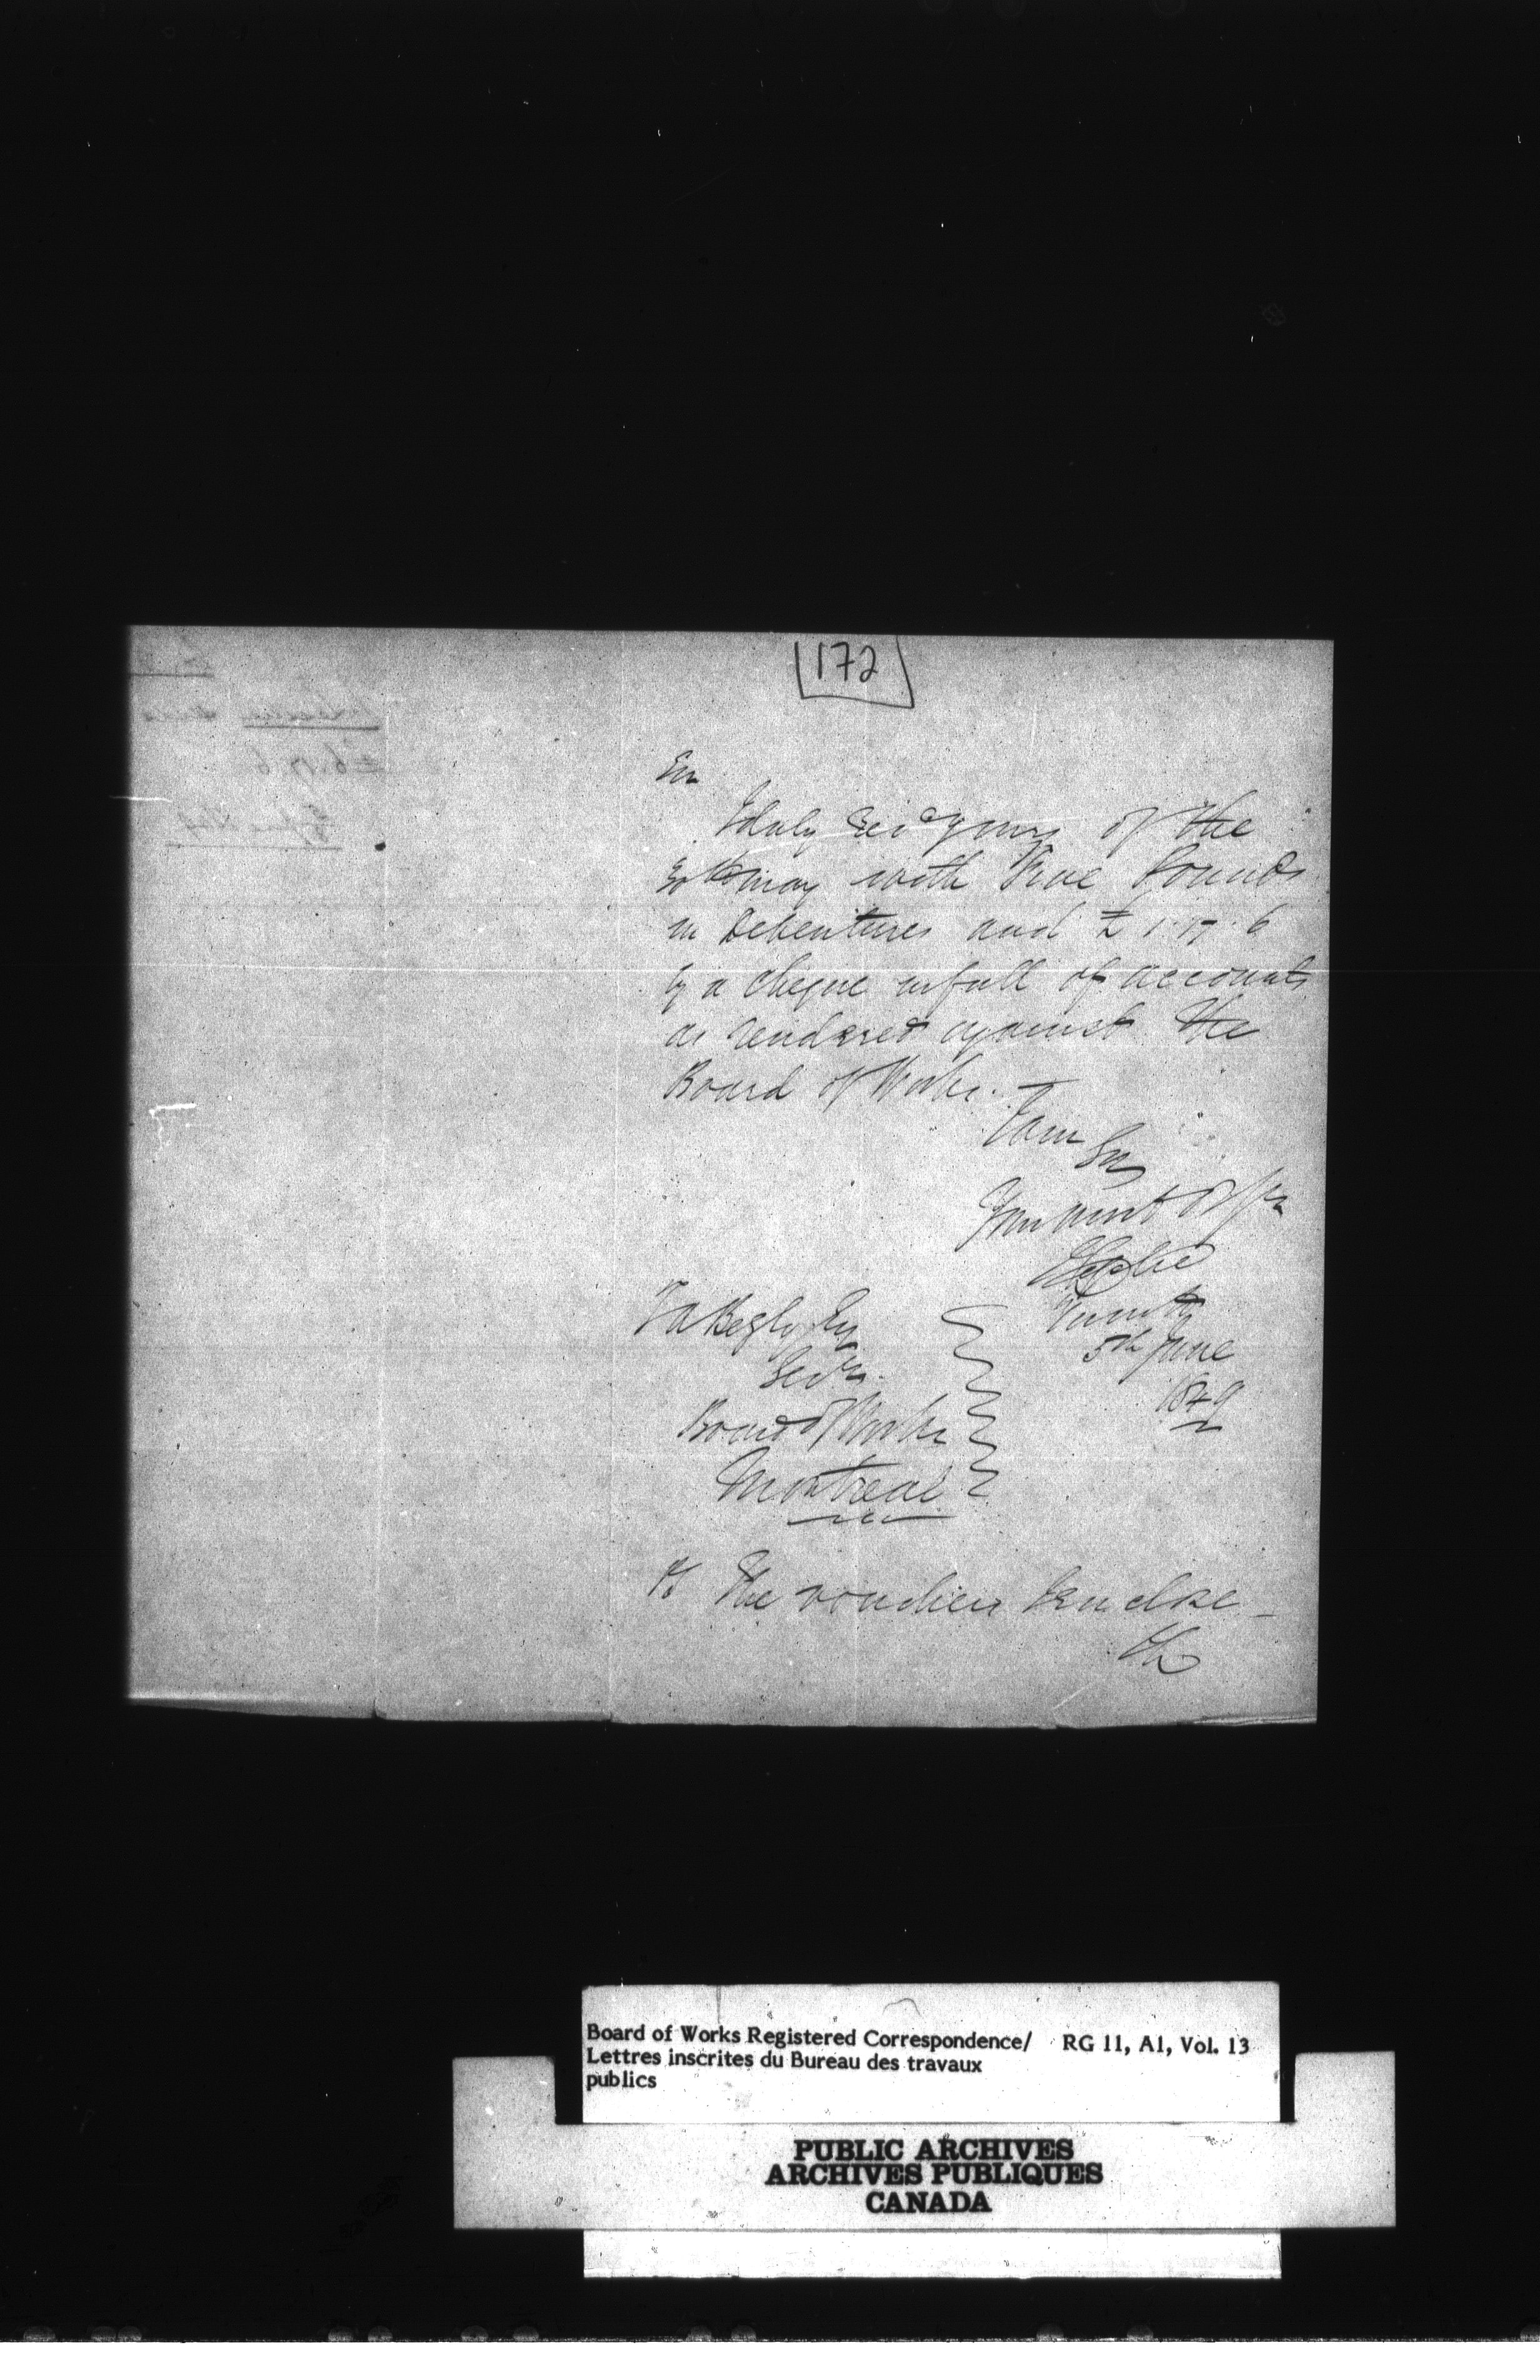 172
Sir
I duly recd yours of the
30th may with Five Pounds
in Debentures and £ 1.17.6
by a cheque in full of accounts
as rendered against the
Board of Works.
I am Sir
Your most Obt
Leslie
Toronto
5th June
1849
T A Begly Esq
Secry.
Board of Works
Montreal
PS The vouchers I enclose
Board of Works Registered Correspondence/ RG 11, A1, Vol. 13
Lettres inscrites du Bureau des travaux
publics
PUBLIC ARCHIVES
ARCHIVES PUBLIQUES
CANADA